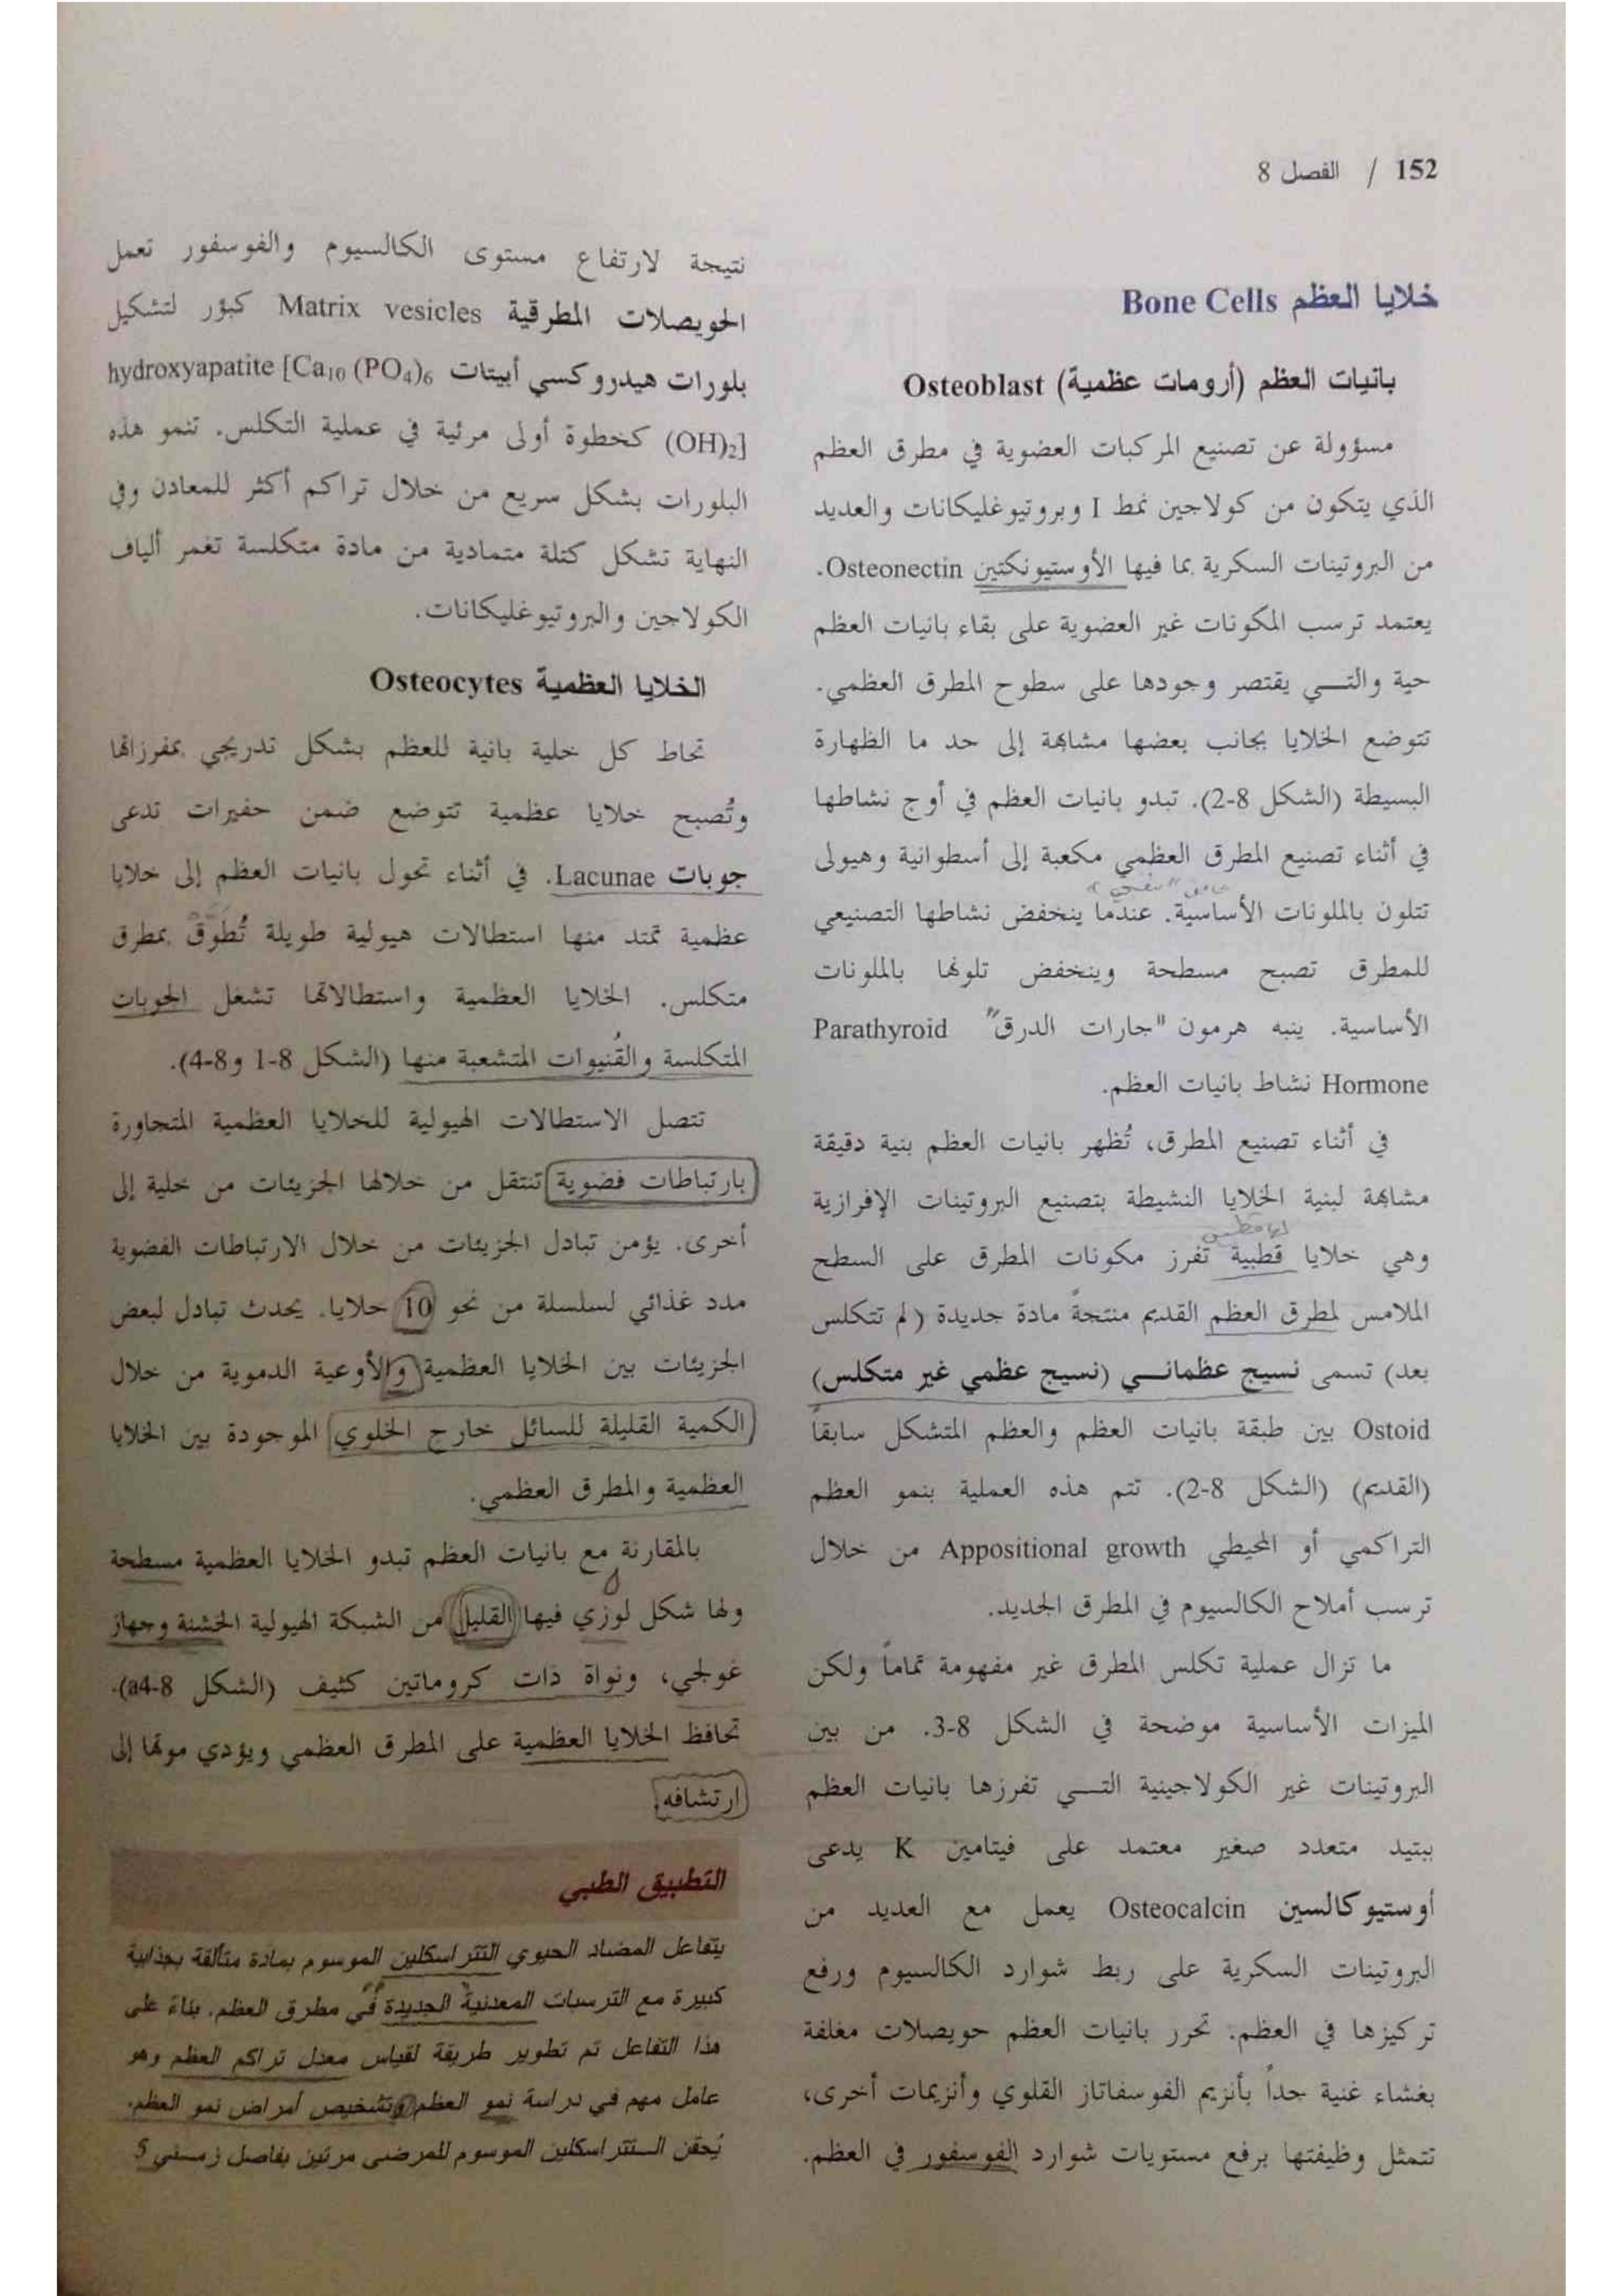 152 / الفصل 8
خلايا العظم Bone Cells
بانيات العظم (أرومات عظمية) Osteoblast
مسؤولة عن تصنيع المركبات العضوية في مطرق العظم
الذي يتكون من كولاجين نمط I وبروتيوغليكانات والعديد
من البروتينات السكرية بما فيها الأوستيونكتين Osteonectin.
يعتمد ترسب المكونات غير العضوية على بقاء بانيات العظم
حية والتي يقتصر وجودها على سطوح المطرق العظمي.
تتوضع الخلايا بجانب بعضها مشابهة إلى حد ما الظهارة
البسيطة (الشكل 8-2). تبدو بانيات العظم في أوج نشاطها
في أثناء تصنيع المطرق العظمي مكعبة إلى أسطوانية وهيولى
تتلون بالملونات الأساسية. عندما ينخفض نشاطها التصنيعي
للمطرق تصبح مسطحة وينخفض تلونها بالملونات
الأساسية. ينبه هرمون "جارات الدرق" Parathyroid
Hormone نشاط بانيات العظم.
في أثناء تصنيع المطرق، تُظهر بانيات العظم بنية دقيقة
مشابهة لبنية الخلايا النشيطة بتصنيع البروتينات الإفرازية
وهي خلايا قطبية تفرز مكونات المطرق على السطح
الملامس لمطرق العظم القديم منتجةً مادة جديدة (لم تتكلس
بعد) تسمى نسيج عظماني (نسيج عظمي غير متكلس)
Ostoid بين طبقة بانيات العظم والعظم المتشكل سابقاً
(القديم) (الشكل 8-2). تتم هذه العملية بنمو العظم
التراكمي أو المحيطي Appositional growth من خلال
ترسب أملاح الكالسيوم في المطرق الجديد.
ما تزال عملية تكلس المطرق غير مفهومة تماماً ولكن
الميزات الأساسية موضحة في الشكل 8-3. من بين
البروتينات غير الكولاجينية التي تفرزها بانيات العظم
ببتيد متعدد صغير معتمد على فيتامين K يدعى
أوستيوكالسين Osteocalcin يعمل مع العديد من
البروتينات السكرية على ربط شوارد الكالسيوم ورفع
تركيزها في العظم. تحرر بانيات العظم حويصلات مغلفة
بغشاء غنية جداً بأنزيم الفوسفاتاز القلوي وأنزيمات أخرى،
تتمثل وظيفتها برفع مستويات شوارد الفوسفور في العظم.
نتيجة لارتفاع مستوى الكالسيوم والفوسفور تعمل
الحويصلات المطرقية Matrix vesicles كبؤر لتشكيل
بلورات هيدروكسي أبيتات hydroxyapatite [Ca10 (PO4)6
(OH)2] كخطوة أولى مرئية في عملية التكلس. تنمو هذه
البلورات بشكل سريع من خلال تراكم أكثر للمعادن وفي
النهاية تشكل كتلة متمادية من مادة متكلسة تغمر ألياف
الكولاجين والبروتيوغليكانات.
الخلايا العظمية Osteocytes
تحاط كل خلية بانية للعظم بشكل تدريجي بمفرزاتها
وتُصبح خلايا عظمية تتوضع ضمن حفيرات تدعى
جوبات Lacunae. في أثناء تحول بانيات العظم إلى خلايا
عظمية تمتد منها استطالات هيولية طويلة تُطوق بمطرق
متكلس. الخلايا العظمية واستطالاتها تشغل الجوبات
المتكلسة والقُنيوات المتشعبة منها (الشكل 8-1 و8-4).
تتصل الاستطالات الهيولية للخلايا العظمية المتجاورة
بارتباطات فضوية تنتقل من خلالها الجزيئات من خلية إلى
أخرى. يؤمن تبادل الجزيئات من خلال الارتباطات الفضوية
مدد غذائي لسلسلة من نحو 10 خلايا. يحدث تبادل لبعض
الجزيئات بين الخلايا العظمية والأوعية الدموية من خلال
الكمية القليلة للسائل خارج الخلوي الموجودة بين الخلايا
العظمية والمطرق العظمي.
بالمقارنة مع بانيات العظم تبدو الخلايا العظمية مسطحة
ولها شكل لوزي فيها القليل من الشبكة الهيولية الخشنة وجهاز
غولجي، ونواة ذات كروماتين كثيف (الشكل 8-4a).
تحافظ الخلايا العظمية على المطرق العظمي ويؤدي موتها إلى
ارتشافه.
التطبيق الطبي
يتفاعل المضاد الحيوي التتراسكلين الموسوم بمادة متألقة بجذابية
كبيرة مع الترسبات المعدنية الجديدة في مطرق العظم. بناءً على
هذا التفاعل تم تطوير طريقة لقياس معدل تراكم العظم وهو
عامل مهم في دراسة نمو العظم وتشخيص أمراض نمو العظم.
يُحقن التتراسكلين الموسوم للمرضى مرتين بفاصل زمني 5